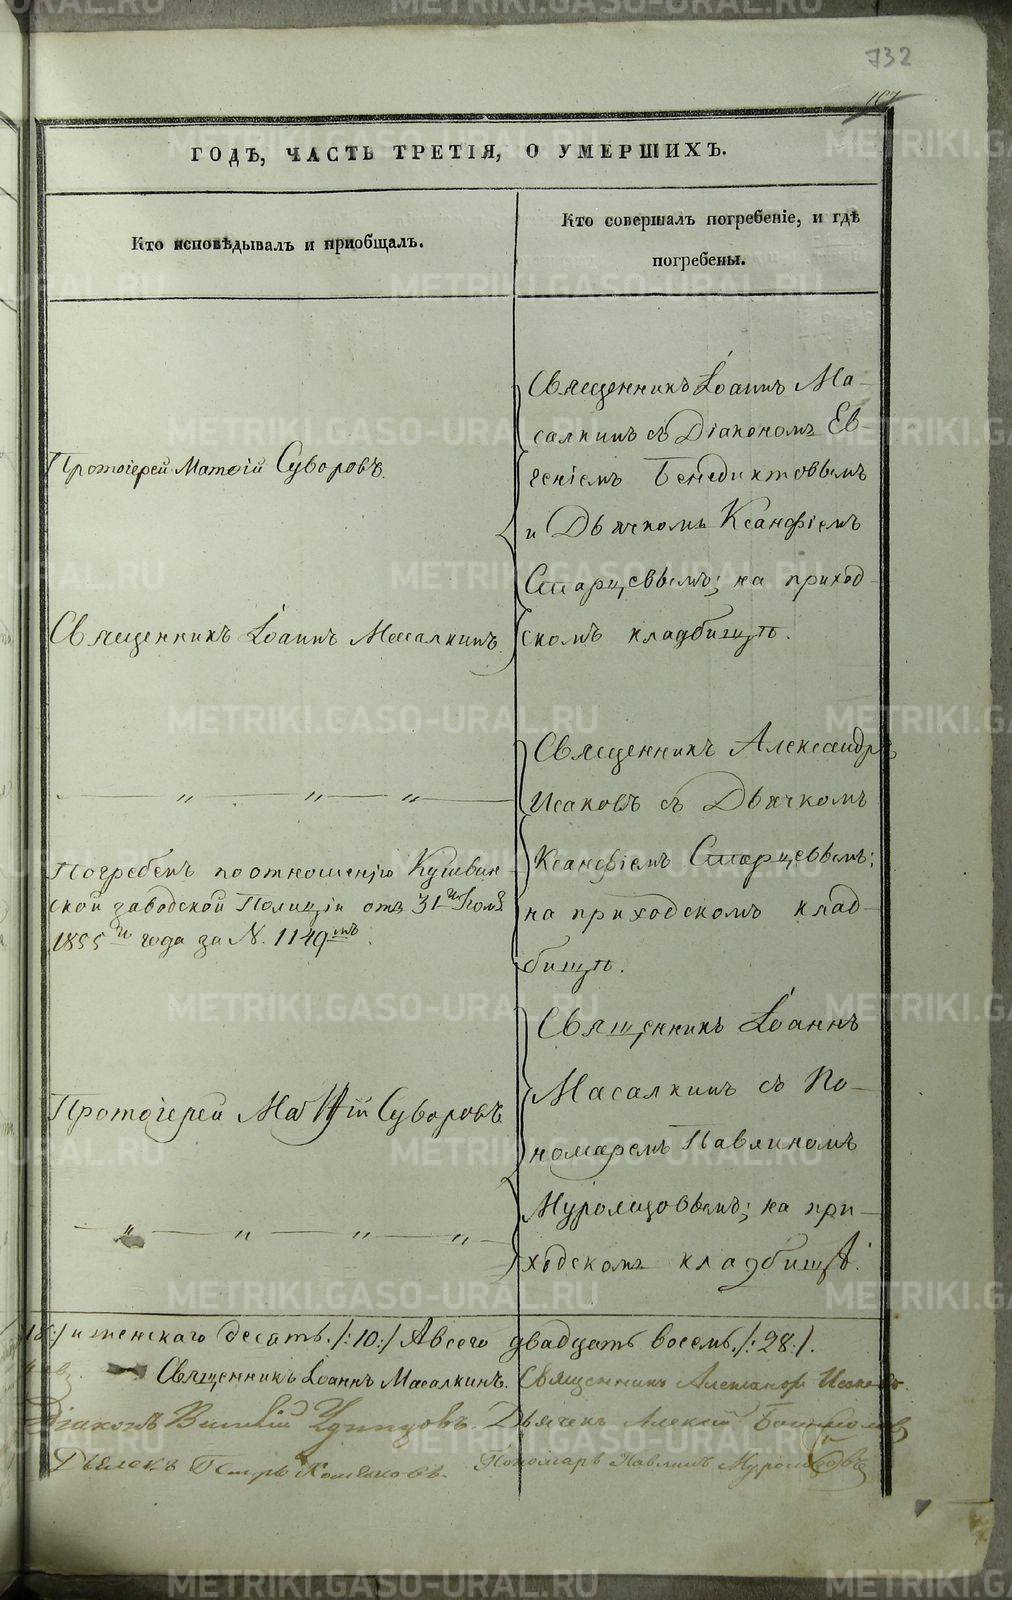 732
ГОДЪ, ЧАСТЬ ТРЕТІЯ, О УМЕРШИХЪ.
Кто исповѣдывалъ и приобщалъ.
Кто совершалъ погребеніе, и гдѣ
погребены.
Протоіерей Матѳій Суворовъ.
Священникъ Іоаннъ Масалкинъ.
Погребенъ по отношенію Кушвин
ской заводской Полиціи отъ 31го Іюля
1855го года за N. 1149мъ.
Протоіерей Матѳій Суворовъ
Священникъ Іоаннъ Ма-
салкинъ съ Діакономъ Ев
геніемъ Бенедиктовымъ
и Дьячкомъ Ксанфіемъ
Старцевымъ; на приход-
скомъ кладбищѣ.
Священникъ Александръ
Исаковъ съ Дьячкомъ
Ксанфіемъ Старцевымъ;
на приходскомъ клад-
бищѣ.
Священникъ Іоаннъ
Масалкинъ съ По-
номаремъ Павлиномъ
Муромцовымъ; на при-
ходскомъ кладбищѣ.
18:/ и женскаго десять./:10:/ А всего двадцать восемь./:28:/.
Священникъ Іоаннъ Масалкинъ. Священникъ Александръ Исаковъ.
Діаконъ Удинцовъ. Дьячекъ Алексій
Дьячекъ Петръ Пономарь Павлинъ Муромцовъ
METRIKI.GASO-URAL.RU